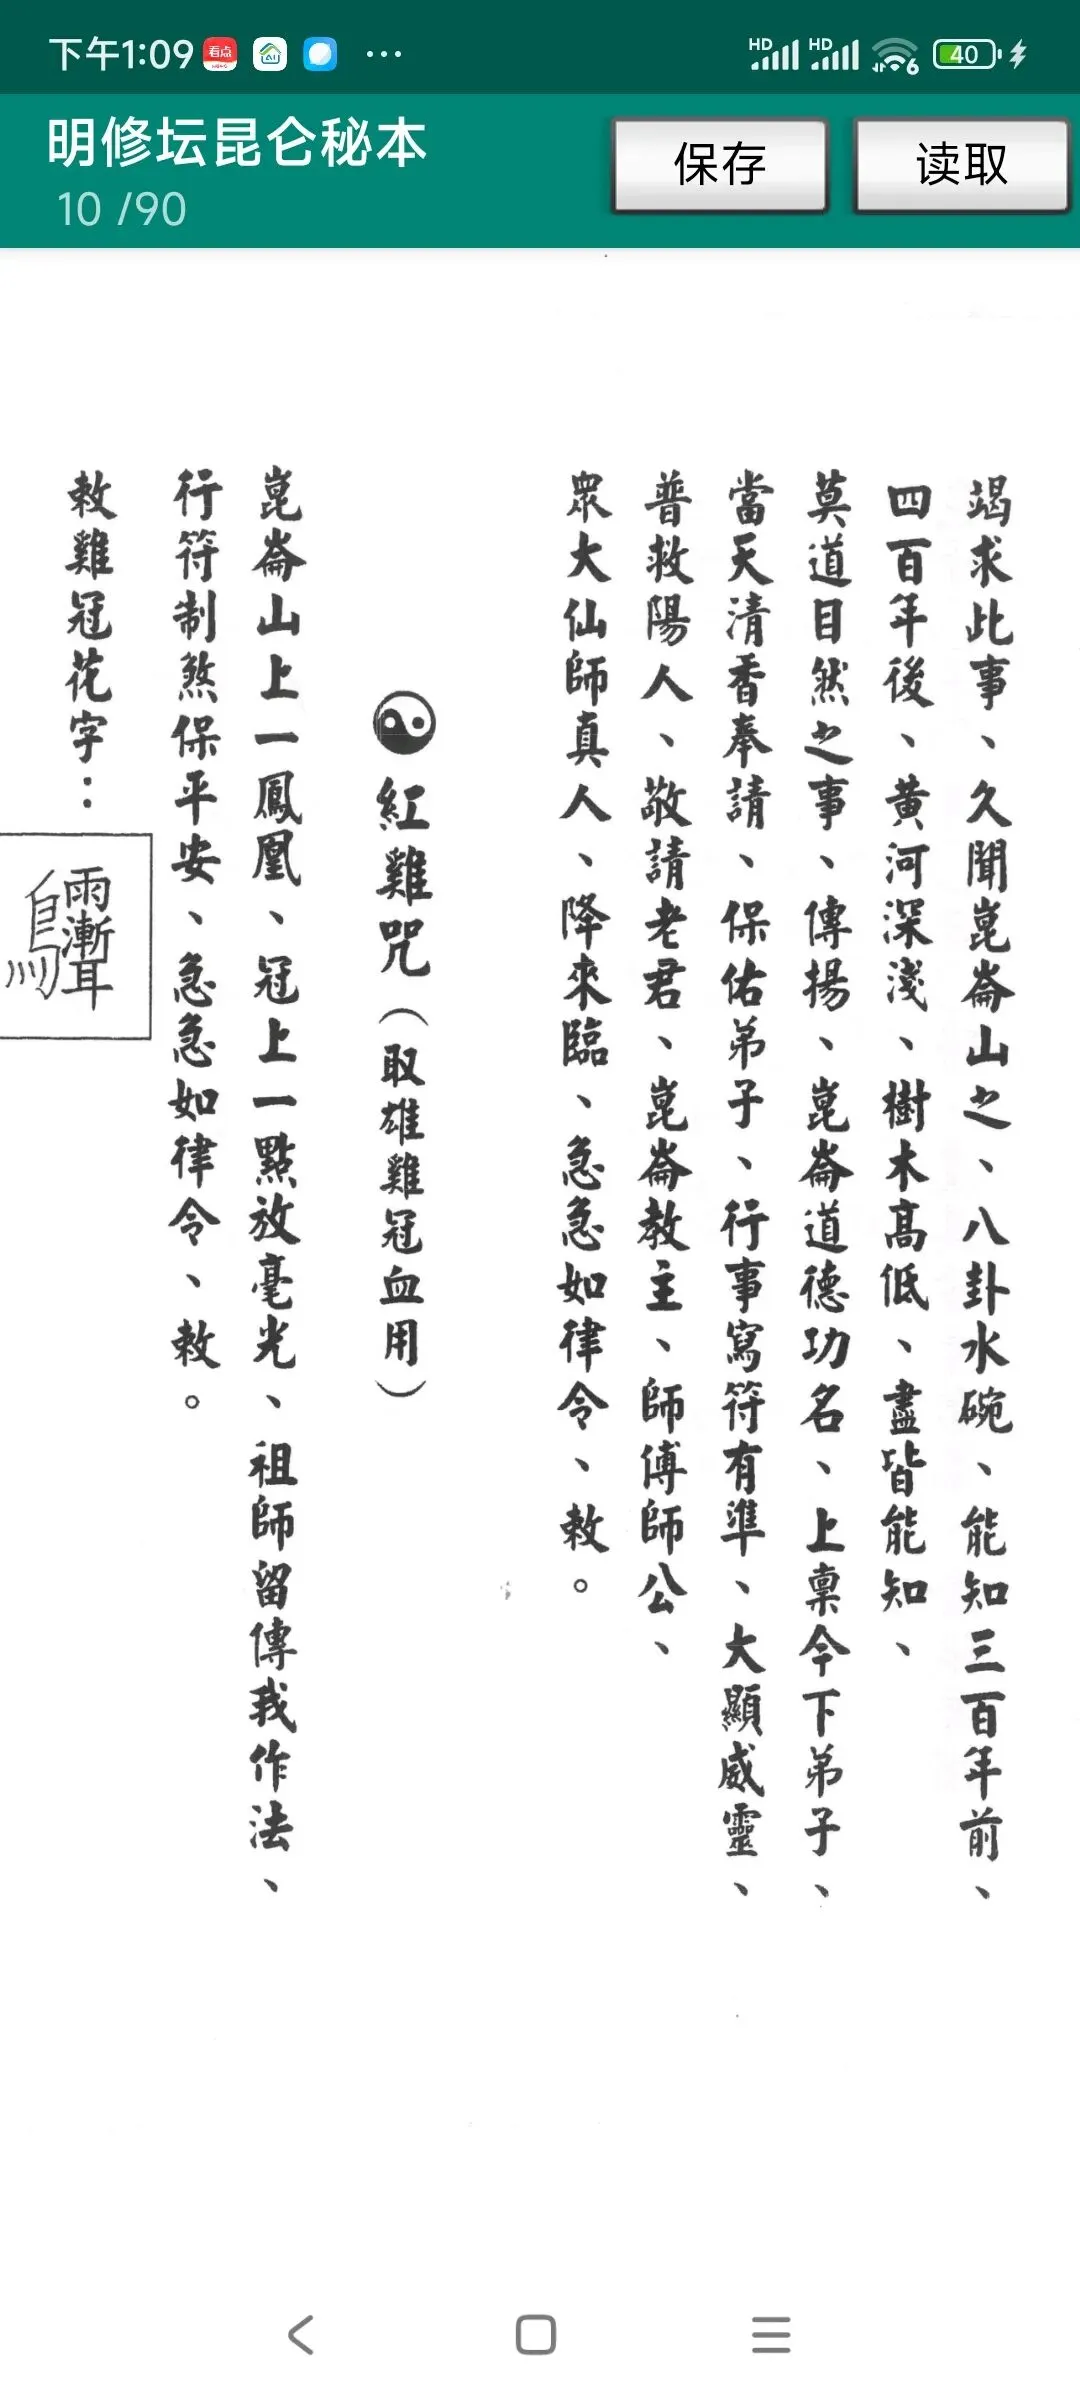 下午1:09
看点
HD HD 6 40
明修坛昆仑秘本
10 /90
保存
读取
竭求此事、久聞崑崙山之、八卦水碗、能知三百年前、
四百年後、黄河深淺、樹木高低、盡皆能知、
莫道目然之事、傳揚、崑崙道德功名、上稟今下弟子、
當天清香奉請、保佑弟子、行事寫符有準、大顯威靈、
普救陽人、敬請老君、崑崙教主、師傅師公、
眾大仙師真人、降來臨、急急如律令、敕。
紅雞咒（取雄雞冠血用）
崑崙山上一鳳凰、冠上一點放毫光、祖師留傳我作法、
行符制煞保平安、急急如律令、敕。
敕雞冠花字：
雨漸耳